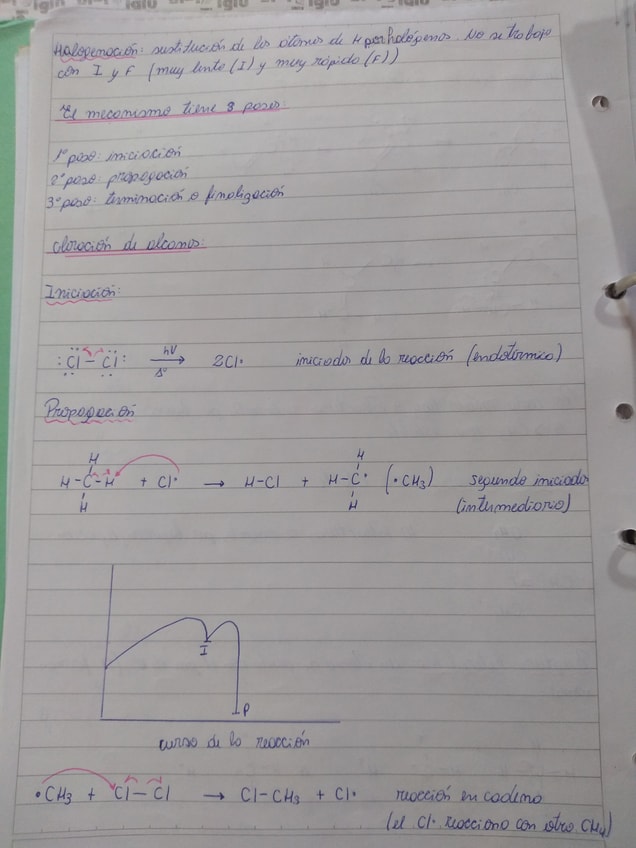 Halogenación: sustitución de los átomos de H por halógenos. No se trabaja
con I y F (muy lento (I) y muy rápido (F))
El mecanismo tiene 3 pasos:
1° paso: iniciación
2° paso: propagación
3° paso: terminación o finalización
Cloración de alcanos:
Iniciación:
:Cl-Cl: hν Δ → 2Cl• iniciador de la reacción (endotérmica)
Propagación
H
H-C-H + Cl• → H-Cl + H-C• (•CH₃) segundo iniciador
H
H
H
(intermediario)
I
P
curso de la reacción
•CH₃ + Cl-Cl → Cl-CH₃ + Cl• reacción en cadena
(el Cl• reacciona con otro CH₄)